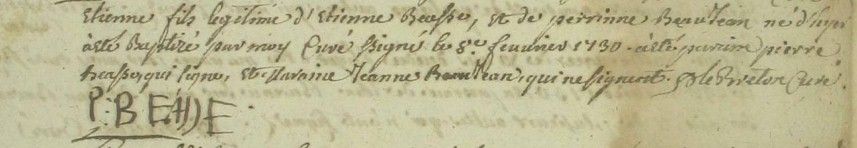 Etienne fils legitime d'Etienne Beasse, et de perrinne BeauJean né d'hyer
a été Baptizé par moy Curé ssigné le 8.e feuvrier 1730. a été parain pierre
beasse, qui signe, et Maraine Jeanne BeauJean, qui ne signent. le Breton Curé.
P: BEASSE